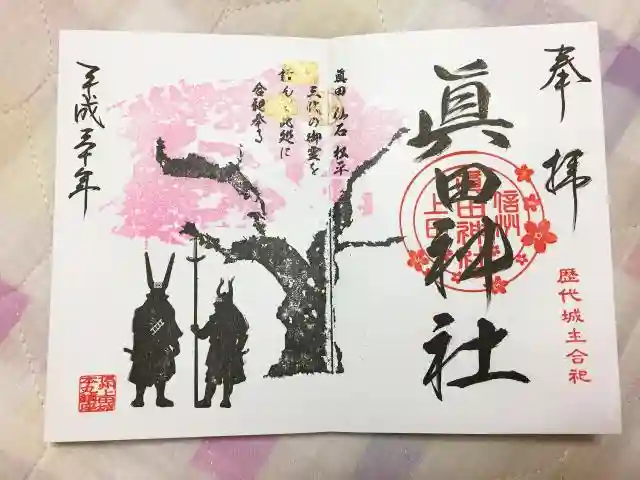 奉拝
眞田神社
信州
眞田神社
上田
歴代城主合祀
眞田 仙石 松平
三代の御霊を
謹んで此処に
合祀奉る
平成三十年